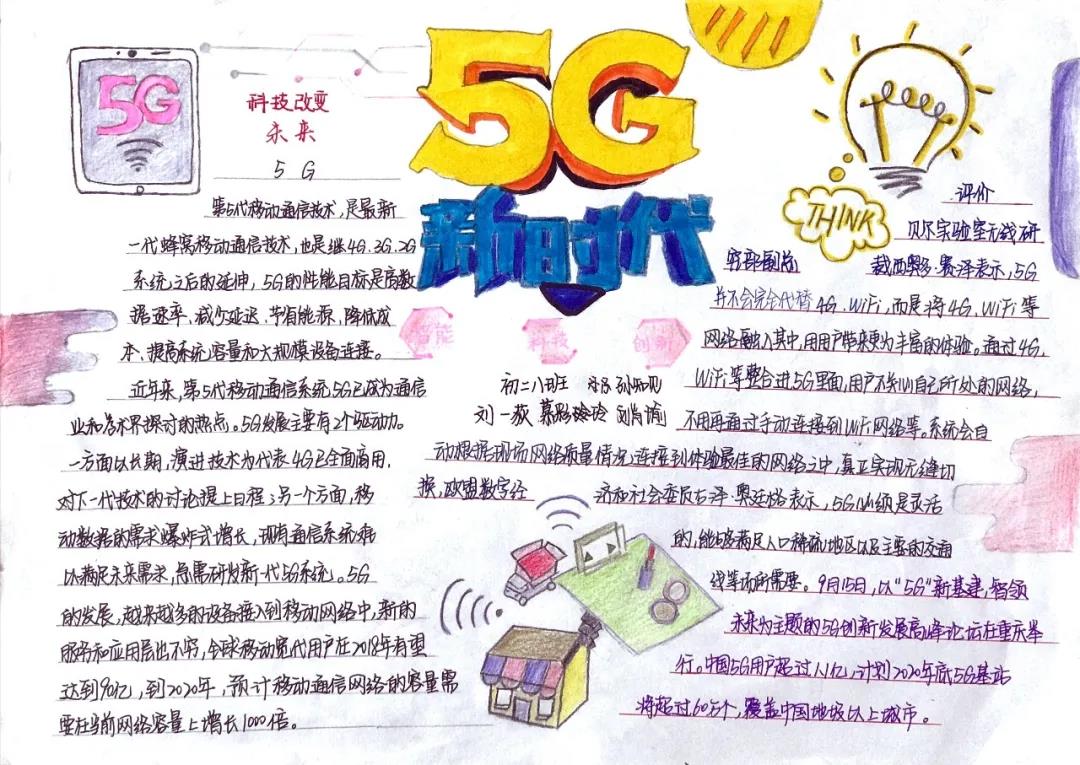 5G
科技改变
未来
5G
5G
新时代
第5代移动通信技术,是最新
一代蜂窝移动通信技术,也是继4G、3G、2G
系统之后的延伸,5G的性能目标是高数
据速率、减少延迟、节省能源、降低成
本、提高系统容量和大规模设备连接。
近年来,第5代移动通信系统5G已成为通信
业和学术界探讨的热点。5G发展主要有2个驱动力。
一方面以长期,演进技术为代表4G已全面商用,
对下一代技术的讨论提上日程;另一个方面,移
动数据的需求爆炸式增长,现有通信系统难
以满足未来需求,急需研发新一代5G系统。5G
的发展,越来越多的设备接入到移动网络中,新的
服务和应用层出不穷,全球移动宽代用户在2018年有望
达到90亿,到2020年,预计移动通信网络的容量需
要在当前网络容量上增长1000倍。
智能
科技
创新
初二八班
刘一荻 慕彤玲玲
THINK
评价
贝尔实验室无线研
究部副总
裁西奥多·赛泽表示,5G
并不会完全代替4G、WiFi,而是将4G、WiFi等
网络融入其中,用用户带来更为丰富的体验。通过4G、
WiFi等整合进5G里面,用户不知自己所处的网络,
不用再通过手动连接到WiFi网络等。系统会自
动根据现场网络质量情况连接到体验最佳的网络之中,真正实现无缝切
换,欧盟数字经
济和社会委员古泽·奥廷格表示,5G必须是灵活
的,能够满足人口稀疏地区以及主要的交通
线等场所需要。9月15日,以“5G”新基建,智领
未来为主题的5G创新发展高峰论坛在重庆举
行。中国5G用户超过1亿,计划2020年底5G基站
将超过60万个,覆盖中国地级以上城市。